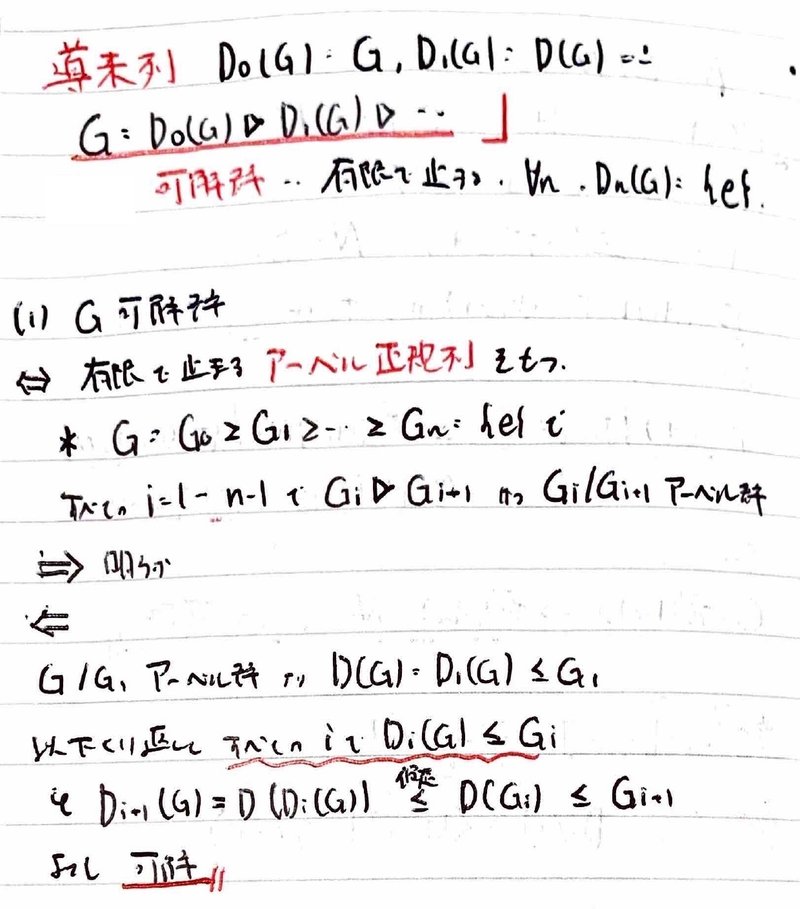 導来列 D₀(G) = G, D₁(G) = D(G) …
G = D₀(G) ▷ D₁(G) ▷ …」
可解群 … 有限で止まる. ∀n . Dₙ(G) = {e}.
(1) G 可解群
⇔ 有限で止まる アーベル正規列 をもつ.
* G = G₀ ≥ G₁ ≥ … ≥ Gₙ = {e} で
すべての i=1 - n-1 で Gᵢ ▷ Gᵢ₊₁ かつ Gᵢ/Gᵢ₊₁ アーベル群
⇒ 明らか
⇐
G/G₁ アーベル群 より D(G) = D₁(G) ≤ G₁
以下くり返して すべての i で Dᵢ(G) ≤ Gᵢ
Dᵢ₊₁(G) = D(Dᵢ(G)) ≤ 仮定 D(Gᵢ) ≤ Gᵢ₊₁
よって 可解